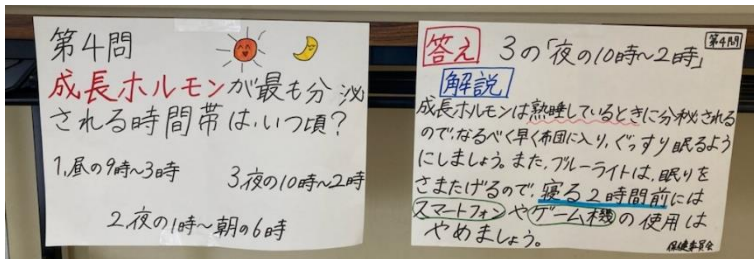 第4問
成長ホルモンが最も分泌
される時間帯は、いつ頃?
1,昼の9時~3時
3,夜の10時~2時
2,夜の1時~朝の6時
第4問
答え 3の「夜の10時~2時」
解説
成長ホルモンは熟睡しているときに分泌される
ので、なるべく早く布団に入り、ぐっすり眠るよう
にしましょう。また、ブルーライトは、眠りを
さまたげるので、寝る2時間前には
スマートフォンやゲーム機の使用は
やめましょう。
保健委員会